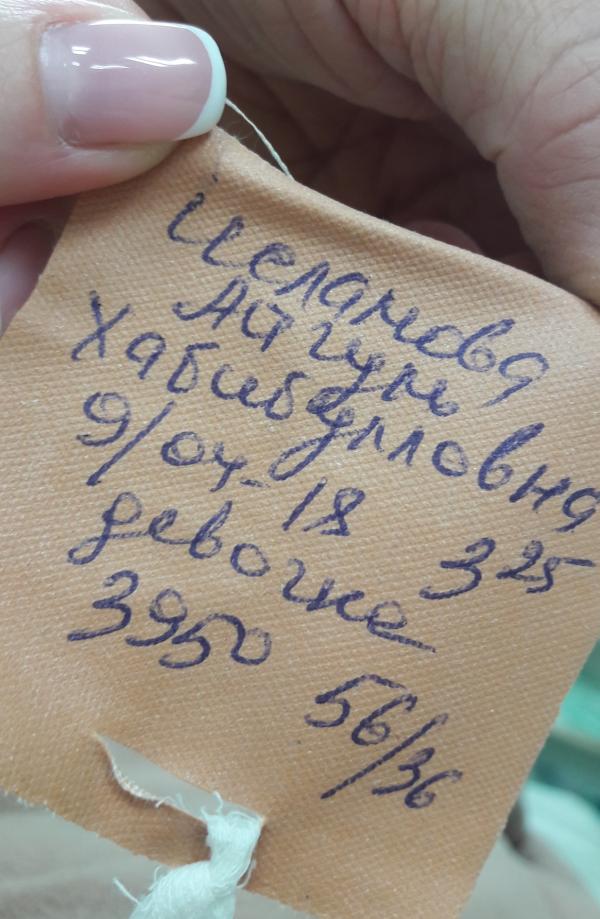 Исламова
Айгуль
Хабибулловна
9/04-18 3 25
девочка
3950
56/36